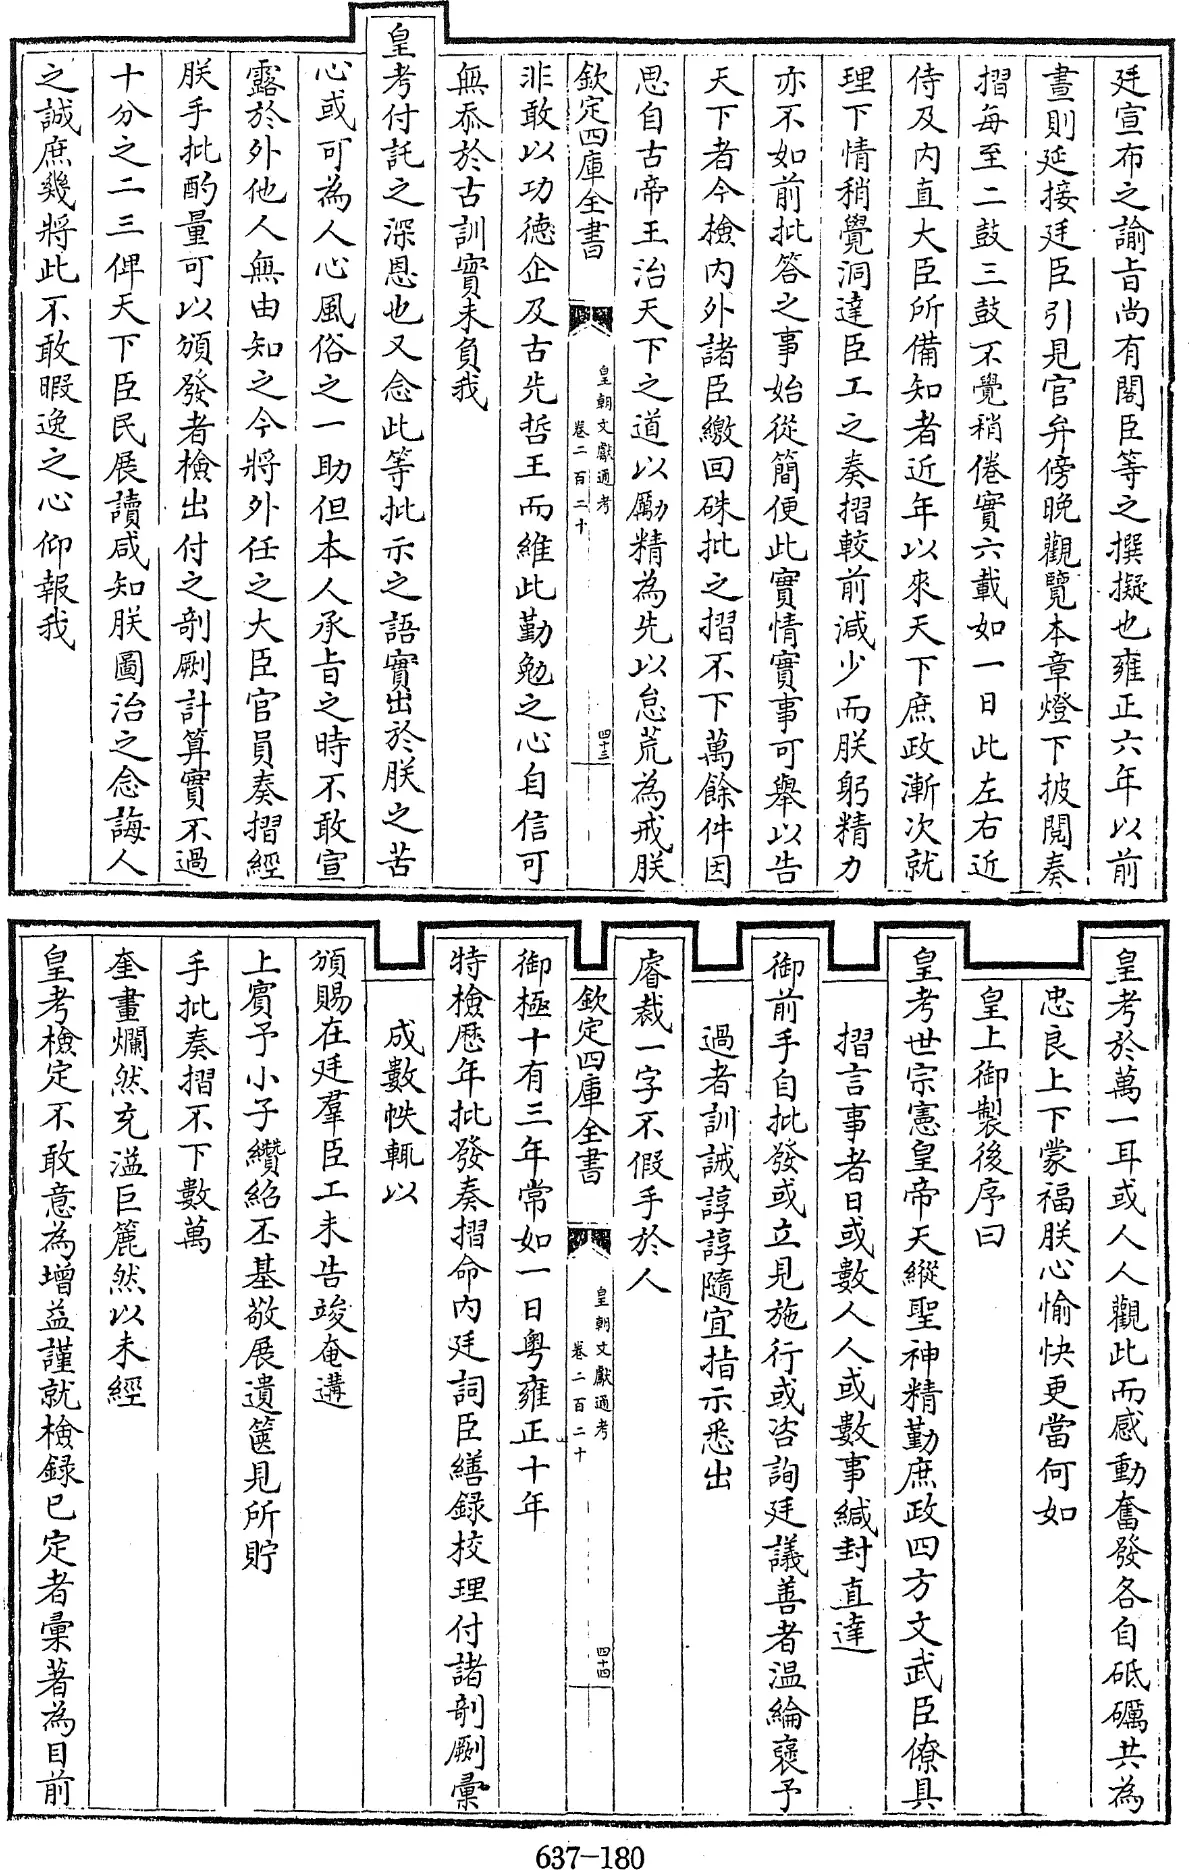 廷宣布之諭旨尚有閣臣等之撰擬也雍正六年以前
晝則延接廷臣引見官弁傍晚觀覽本章燈下披閱奏
摺每至二鼓三鼓不覺稍倦實六載如一日此左右近
侍及内直大臣所備知者近年以來天下庶政漸次就
理下情稍覺洞達臣工之奏摺較前減少而朕躬精力
亦不如前批答之事始從簡便此實情實事可舉以告
天下者今檢内外諸臣繳回硃批之摺不下萬餘件因
思自古帝王治天下之道以勵精為先以怠荒為戒朕
欽定四庫全書
皇朝文獻通考
卷二百二十
四十三
非敢以功德企及古先哲王而維此勤勉之心自信可
無忝於古訓實未負我
皇考付託之深恩也又念此等批示之語實出於朕之苦
心或可為人心風俗之一助但本人承旨之時不敢宣
露於外他人無由知之今將外任之大臣官員奏摺經
朕手批酌量可以頒發者檢出付之剞劂計算實不過
十分之二三俾天下臣民展讀咸知朕圖治之念誨人
之誠庶幾將此不敢暇逸之心仰報我
皇考於萬一耳或人人觀此而感動奮發各自砥礪共為
忠良上下蒙福朕心愉快更當何如
皇上御製後序曰
皇考世宗憲皇帝天縱聖神精勤庶政四方文武臣僚具
摺言事者日或數人人或數事緘封直達
御前手自批發或立見施行或咨詢廷議善者溫綸襃予
過者訓誡諄諄隨宜指示悉出
睿裁一字不假手於人
欽定四庫全書
皇朝文獻通考
卷二百二十
四十四
御極十有三年常如一日粤雍正十年
特檢歷年批發奏摺命内廷詞臣繕録校理付諸剞劂彙
成數帙輒以
頒賜在廷羣臣工未告竣奄遘
上賓予小子纘紹丕基敬展遺篋見所貯
手批奏摺不下數萬
奎畫爛然充溢巨簏然以未經
皇考檢定不敢意為增益謹就檢録已定者彙著為目前
637-180